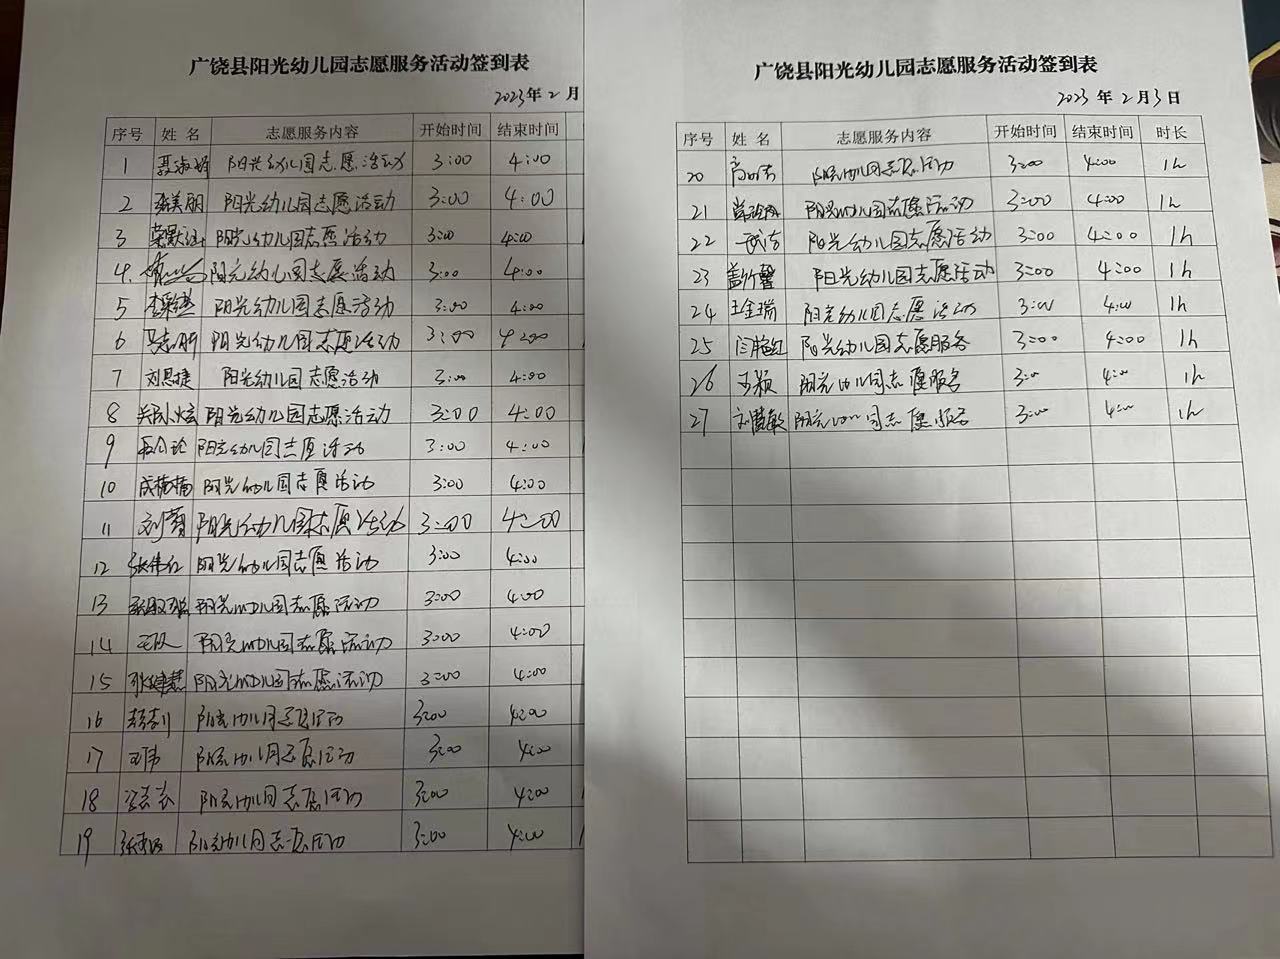 广饶县阳光幼儿园志愿服务活动签到表
2023年2月
序号 姓名 志愿服务内容 开始时间 结束时间
1 阳光幼儿园志愿活动 3:00 4:00
2 张美丽 阳光幼儿园志愿活动 3:00 4:00
3 阳光幼儿园志愿活动 3:00 4:00
4 阳光幼儿园志愿活动 3:00 4:00
5 阳光幼儿园志愿活动 3:00 4:00
6 阳光幼儿园志愿活动 3:00 4:00
7 刘思捷 阳光幼儿园志愿活动 3:00 4:00
8 阳光幼儿园志愿活动 3:00 4:00
9 阳光幼儿园志愿活动 3:00 4:00
10 成楠楠 阳光幼儿园志愿活动 3:00 4:00
11 阳光幼儿园志愿活动 3:00 4:00
12 张伟红 阳光幼儿园志愿活动 3:00 4:00
13 阳光幼儿园志愿活动 3:00 4:00
14 阳光幼儿园志愿活动 3:00 4:00
15 阳光幼儿园志愿活动 3:00 4:00
16 阳光幼儿园志愿活动 3:00 4:00
17 王伟 阳光幼儿园志愿活动 3:00 4:00
18 阳光幼儿园志愿活动 3:00 4:00
19 阳光幼儿园志愿活动 3:00 4:00
广饶县阳光幼儿园志愿服务活动签到表
2023年2月3日
序号 姓名 志愿服务内容 开始时间 结束时间 时长
20 阳光幼儿园志愿活动 3:00 4:00 1h
21 阳光幼儿园志愿活动 3:00 4:00 1h
22 阳光幼儿园志愿活动 3:00 4:00 1h
23 盖竹馨 阳光幼儿园志愿活动 3:00 4:00 1h
24 王金瑞 阳光幼儿园志愿活动 3:00 4:00 1h
25 闫艳红 阳光幼儿园志愿服务 3:00 4:00 1h
26 王颖 阳光幼儿园志愿服务 3:00 4:00 1h
27 刘慧敏 阳光幼儿园志愿服务 3:00 4:00 1h